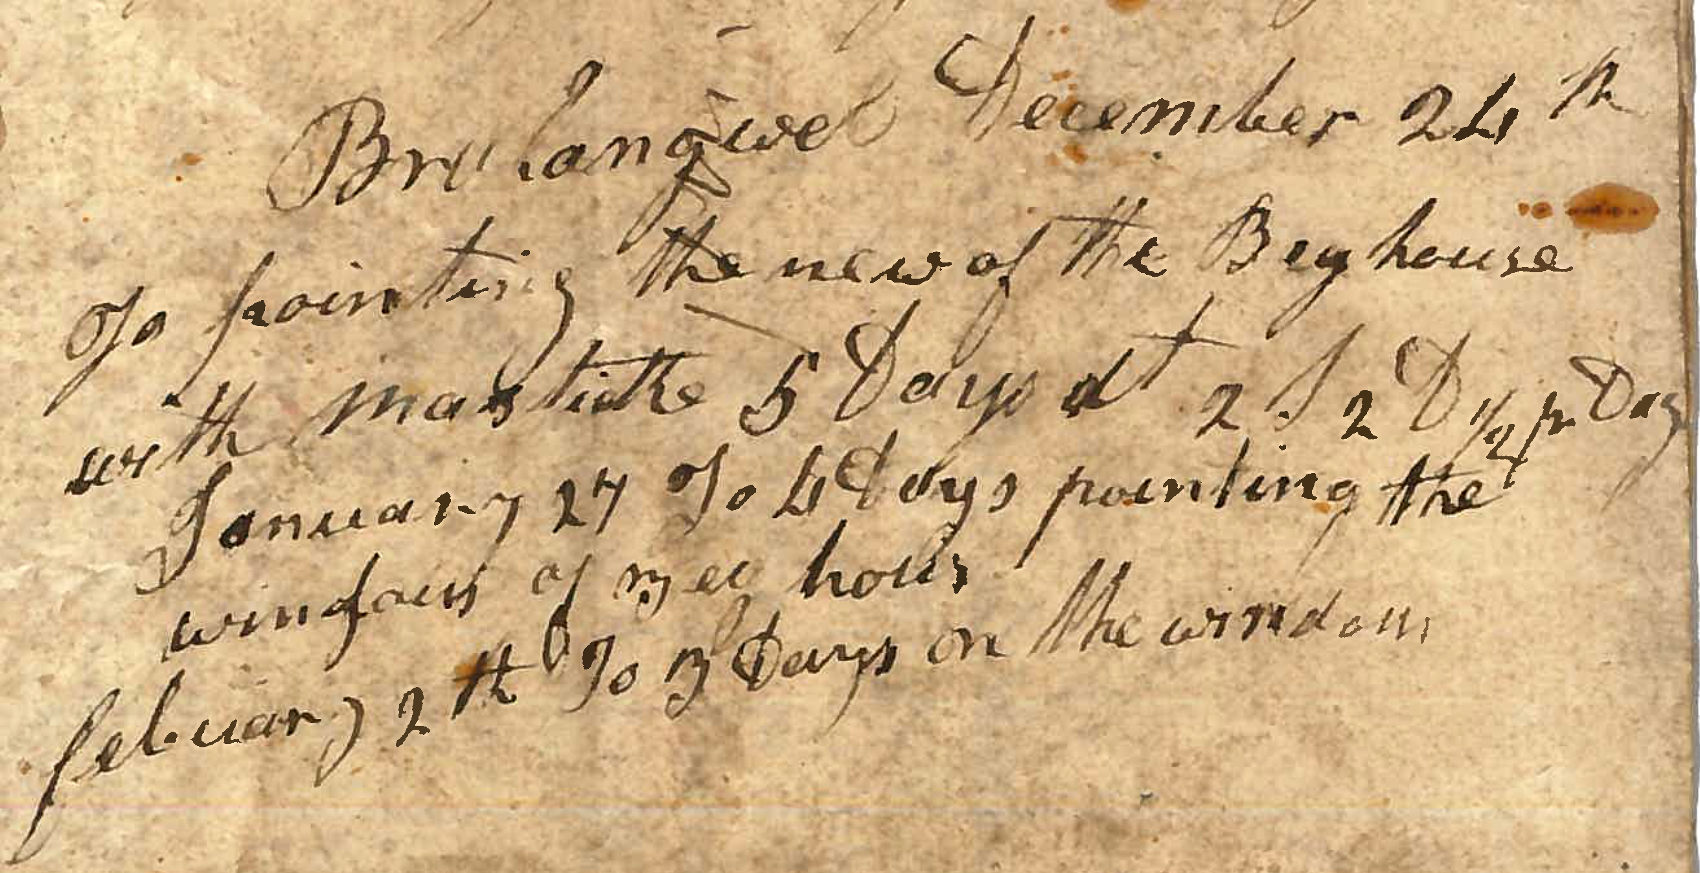 Brahangwel December 24th
To pointing the new of the Beghouse
with masticke 5 Days at 2 S 2 D 1/2 pr Day
January 27 To 4 Days pointing the
windous of beg hous
febuary 2th To 3 Days on the windous